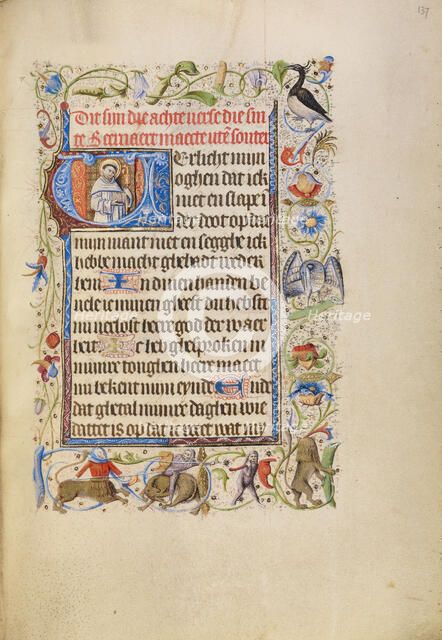 137
Die sijn dye achte verse die sin
te Bernaert maecte utē souter
Verlicht mijn
oghen dat ick
niet en slape i
der doot op dat
mijn viant niet en segghe ick
hebbe macht ghehadt teghen
hem In dinen handen be
vele ic minen gheest du hebste
mi verlost heere god der waer
heit Ic heb ghesproken in
mijnre tonghen heere maect
mi bekent mijn eynde Ende
dat ghetal mijnre daghen wie
dattet is op dat ic weet wat my
Heritage
Images